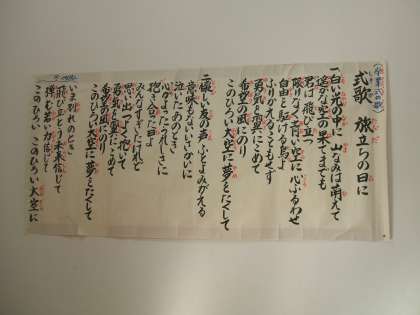 (卒業式歌)
式歌 旅立ちの日に
一 白い光の中に 山なみは萌えて
遥かな空の果てまでも
君は飛び立つ
限りなく青い空に 心ふるわせ
自由を駆ける鳥よ
ふりかえることもせず
勇気を翼にこめて
希望の風にのり
このひろい大空に夢をたくして
二 懐しい友の声 ふとよみがえる
意味もないいさかいに
泣いたあのとき
心かよったうれしさに
抱き合った日よ
みんなすぎたけれど
思い出強く抱いて
勇気を翼にこめて
希望の風にのり
このひろい大空に夢をたくして
いま別れのとき
飛び立とう未来信じて
弾む若い力信じて
このひろい このひろい 大空に